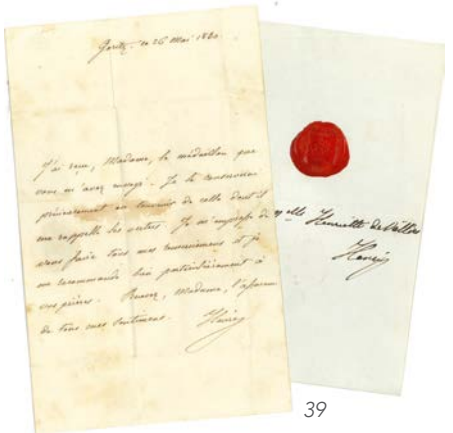 Goritz. ce 26 Mai 18
J'ai reçu, Madame, le médaillon que
vous m'avez envoyé. Je le conserverai
précieusement en souvenir de celle dont il
me rappelle les vertus. Je m'empresse de
vous faire tous mes remercimens et je
me recommande bien particulièrement à
vos prières. Recevez, Madame, l'assurance
de tous mes sentimens.
Henri
Mlle Henriette de
Henri
39